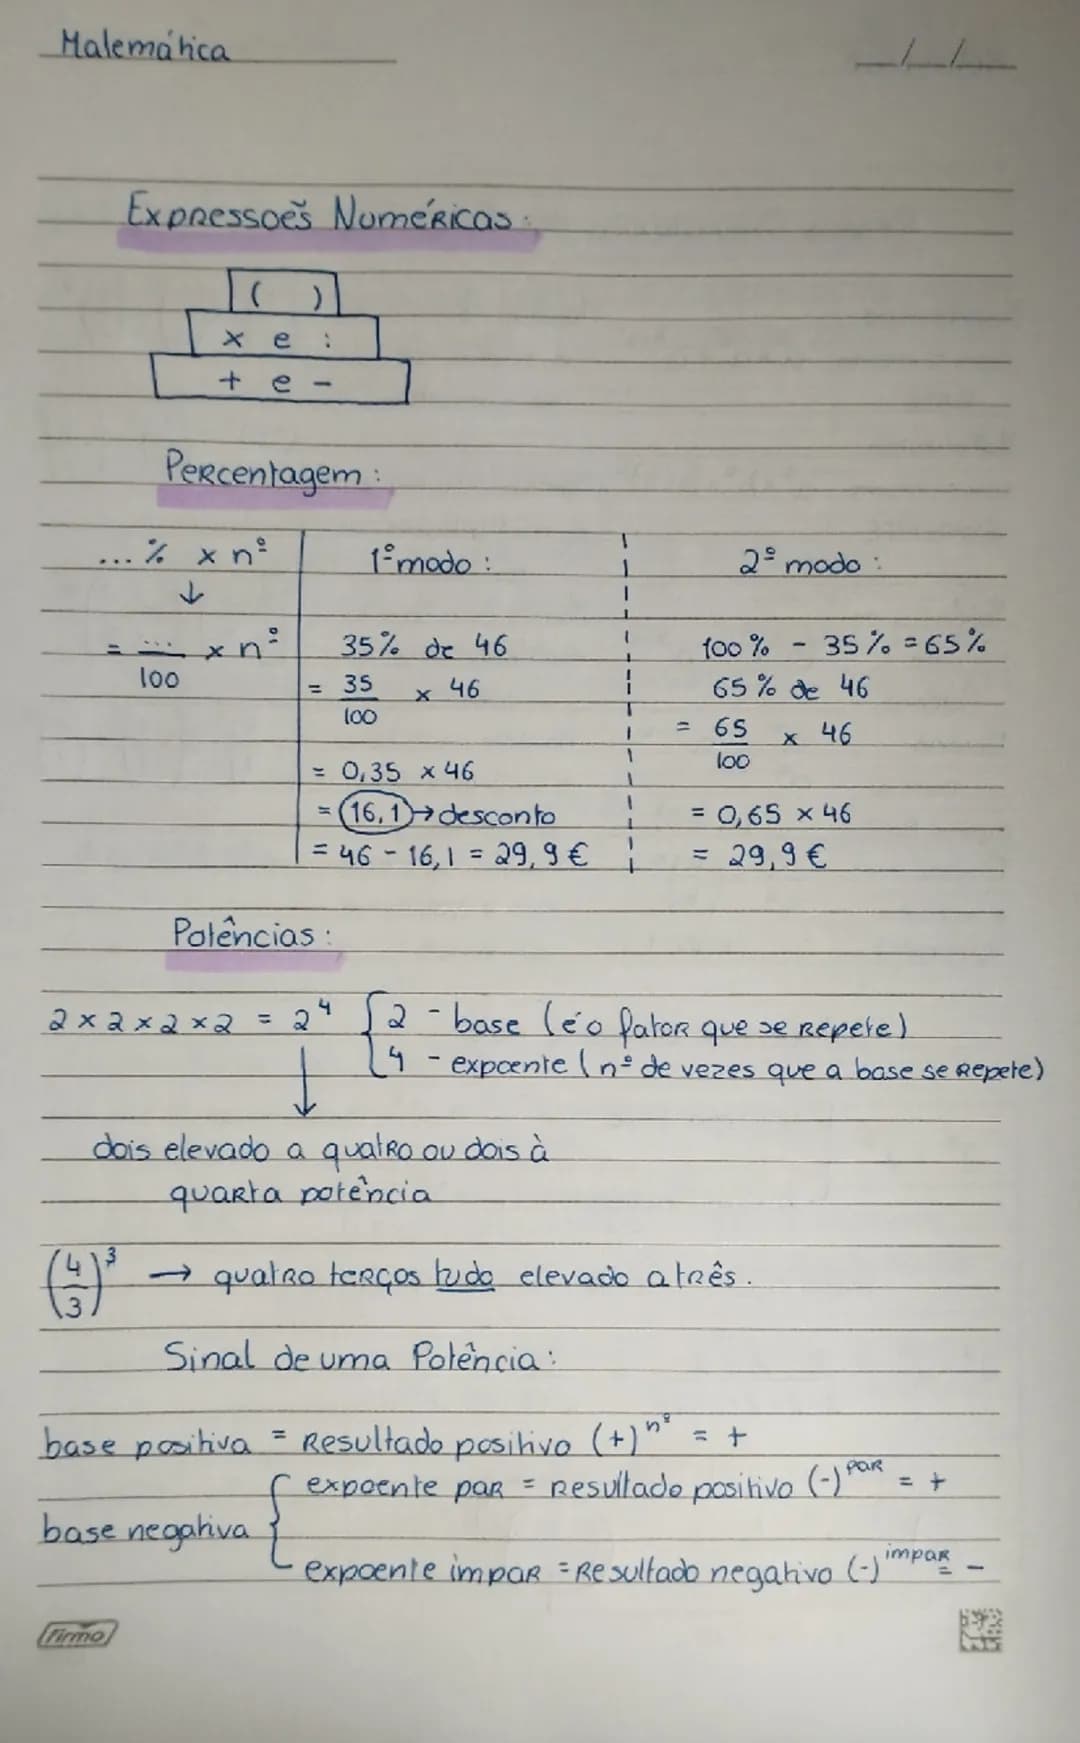 Matemática
__/__/__
Expressões Numéricas:
( )
x e :
+ e -
Percentagem:
...% x nº
↓
= .../100 x nº
1º modo:
35% de 46
= 35/100 x 46
= 0,35 x 46
= 16,1 → desconto
= 46 - 16,1 = 29,9 €
2º modo:
100% - 35% = 65%
65% de 46
= 65/100 x 46
= 0,65 x 46
= 29,9 €
Potências:
2 x 2 x 2 x 2 = 2⁴ { 2 - base (é o fator que se repete)
4 - expoente (nº de vezes que a base se repete)
↓
dois elevado a quatro ou dois à
quarta potência
(4/3)³ → quatro terços tudo elevado a três.
Sinal de uma Potência:
base positiva = Resultado positivo (+)^nº = +
base negativa { expoente par = Resultado positivo (-)^par = +
expoente impar = Resultado negativo (-)^impar = -
Firmo